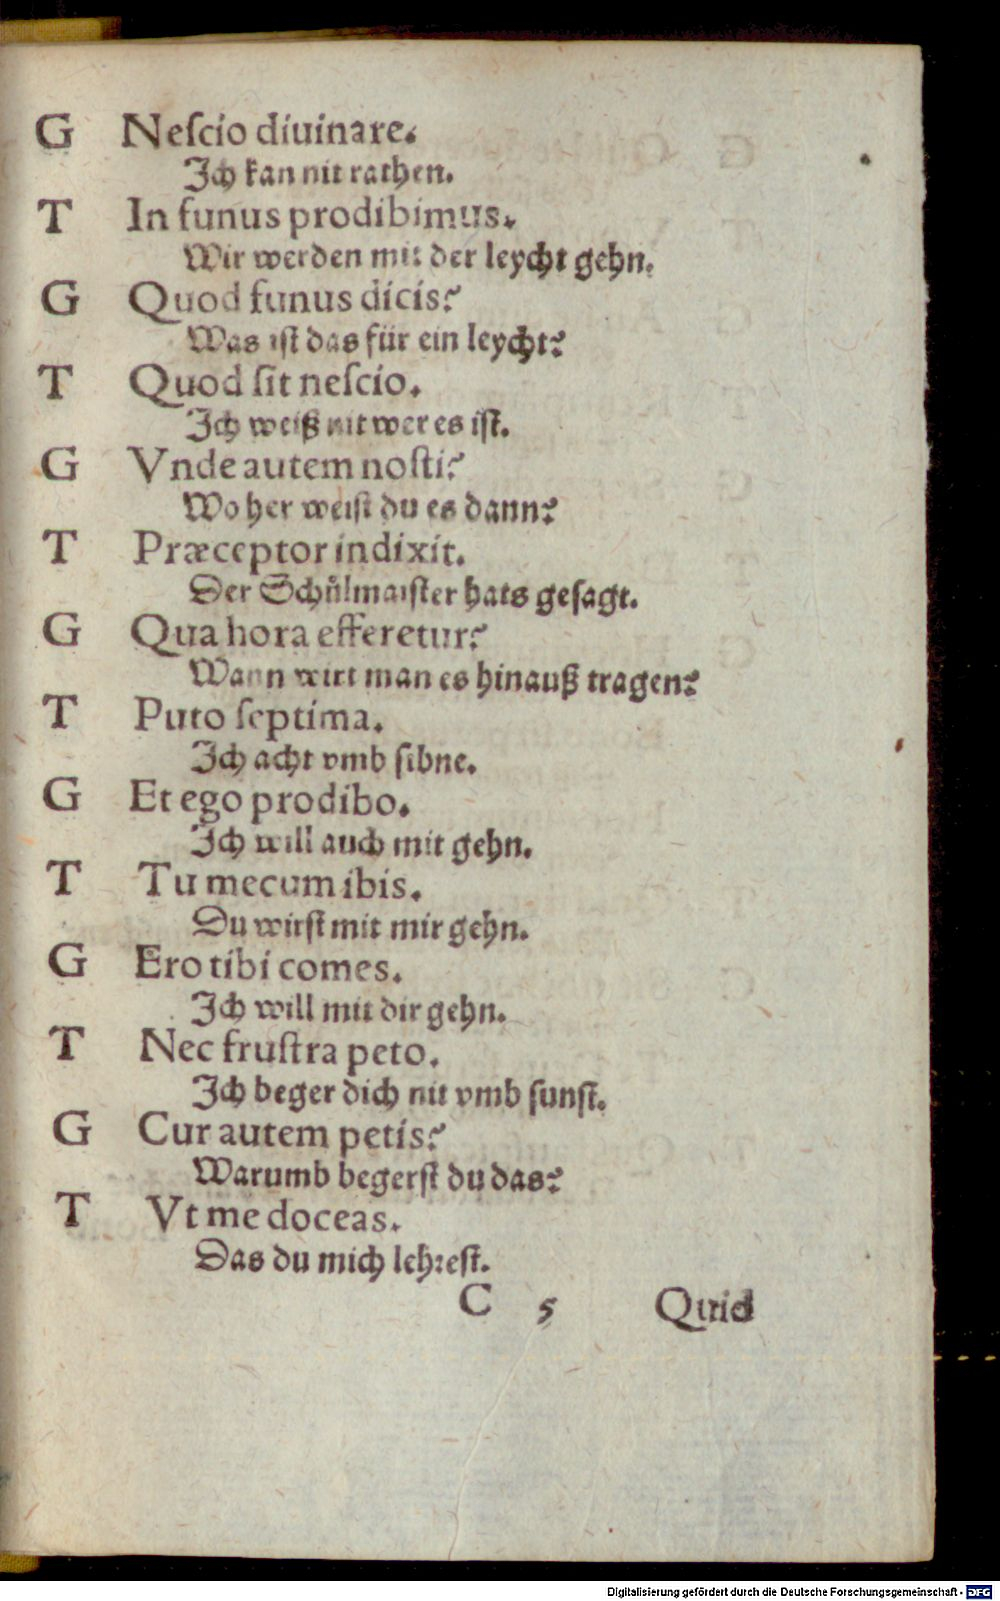 G Neſcio diuinare.
Ich kan nit rathen.
T In funus prodibimus.
Wir werden mit der leycht gehn.
G Quod funus dicis?
Was iſt das für ein leycht?
T Quod ſit neſcio.
Ich weiß nit wer es iſt.
G Vnde autem noſti?
Wo her weiſt du es dann?
T Præceptor indixit.
Der Schůlmaiſter hats geſagt.
G Qua hora efferetur?
Wann wirt man es hinauß tragen?
T Puto ſeptima.
Ich acht vmb ſibne.
G Et ego prodibo.
Ich will auch mit gehn.
T Tu mecum ibis.
Du wirſt mit mir gehn.
G Ero tibi comes.
Ich will mit dir gehn.
T Nec fruſtra peto.
Ich beger dich nit vmb ſunſt.
G Cur autem petis?
Warumb begerſt du das?
T Vt me doceas.
Das du mich lehreſt.
C 5 Quid
Digitalisierung gefördert durch die Deutsche Forschungsgemeinschaft - DFG